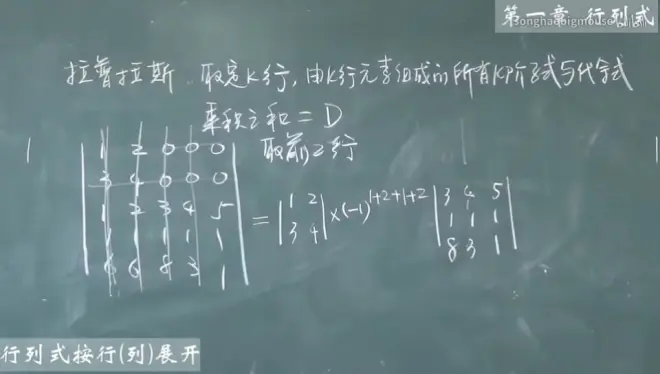 第一章 行列式
拉普拉斯 取定K行,由K行元素组成的所有K阶子式与代余式
乘积之和=D
取前2行
1 2 0 0 0
3 4 0 0 0
1 2 3 4 5
1 1 1 1 1
6 6 8 3 1
= | 1 2 | ×(-1)^{1+2+1+2} | 3 4 5 |
| 3 4 | | 1 1 1 |
| 8 3 1 |
行列式按行(列)展开